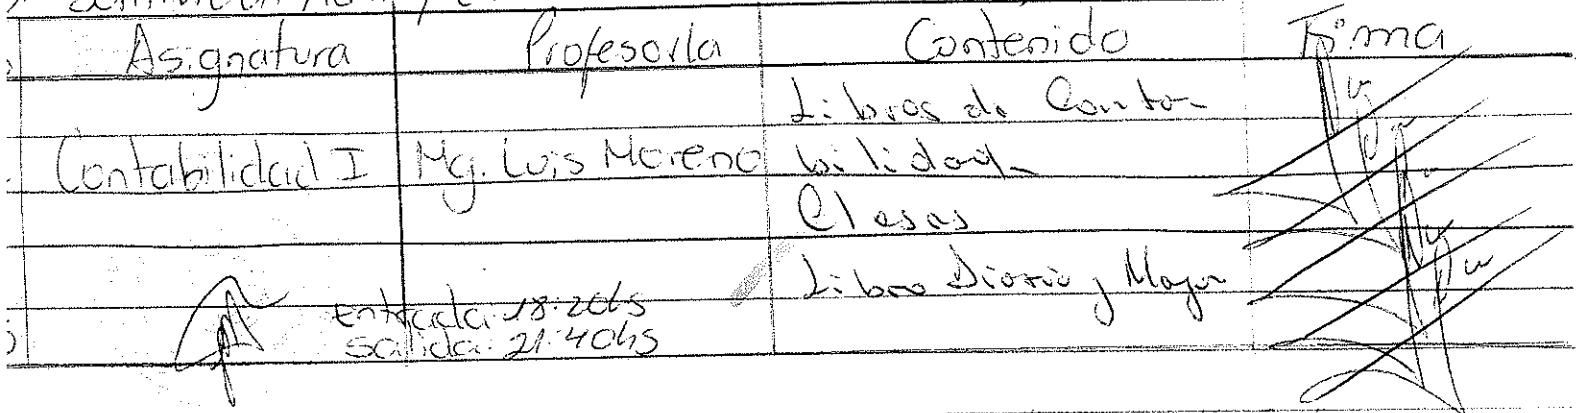 Asignatura Profesor/a Contenido Firma
Libros de Conta-
Contabilidad I Mg. Luis Moreno bilidad
Clases
Libro Diario y Mayor
Entrada: 18:20hs
Salida: 21:40hs